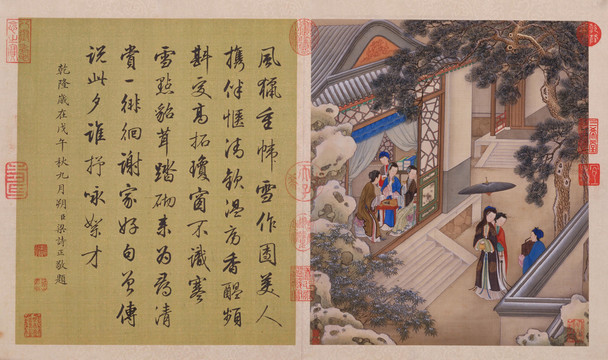 風獵重幃雪作團美人
攜伴愜清歡温香醖頻
斟處高拓瓊窗不識寒
雪點貂茸踏砌來為尋清
賞一徘徊謝家好句曾傳
説此夕誰抒詠絮才
乾隆歲在戊午秋九月朔日梁詩正敬題